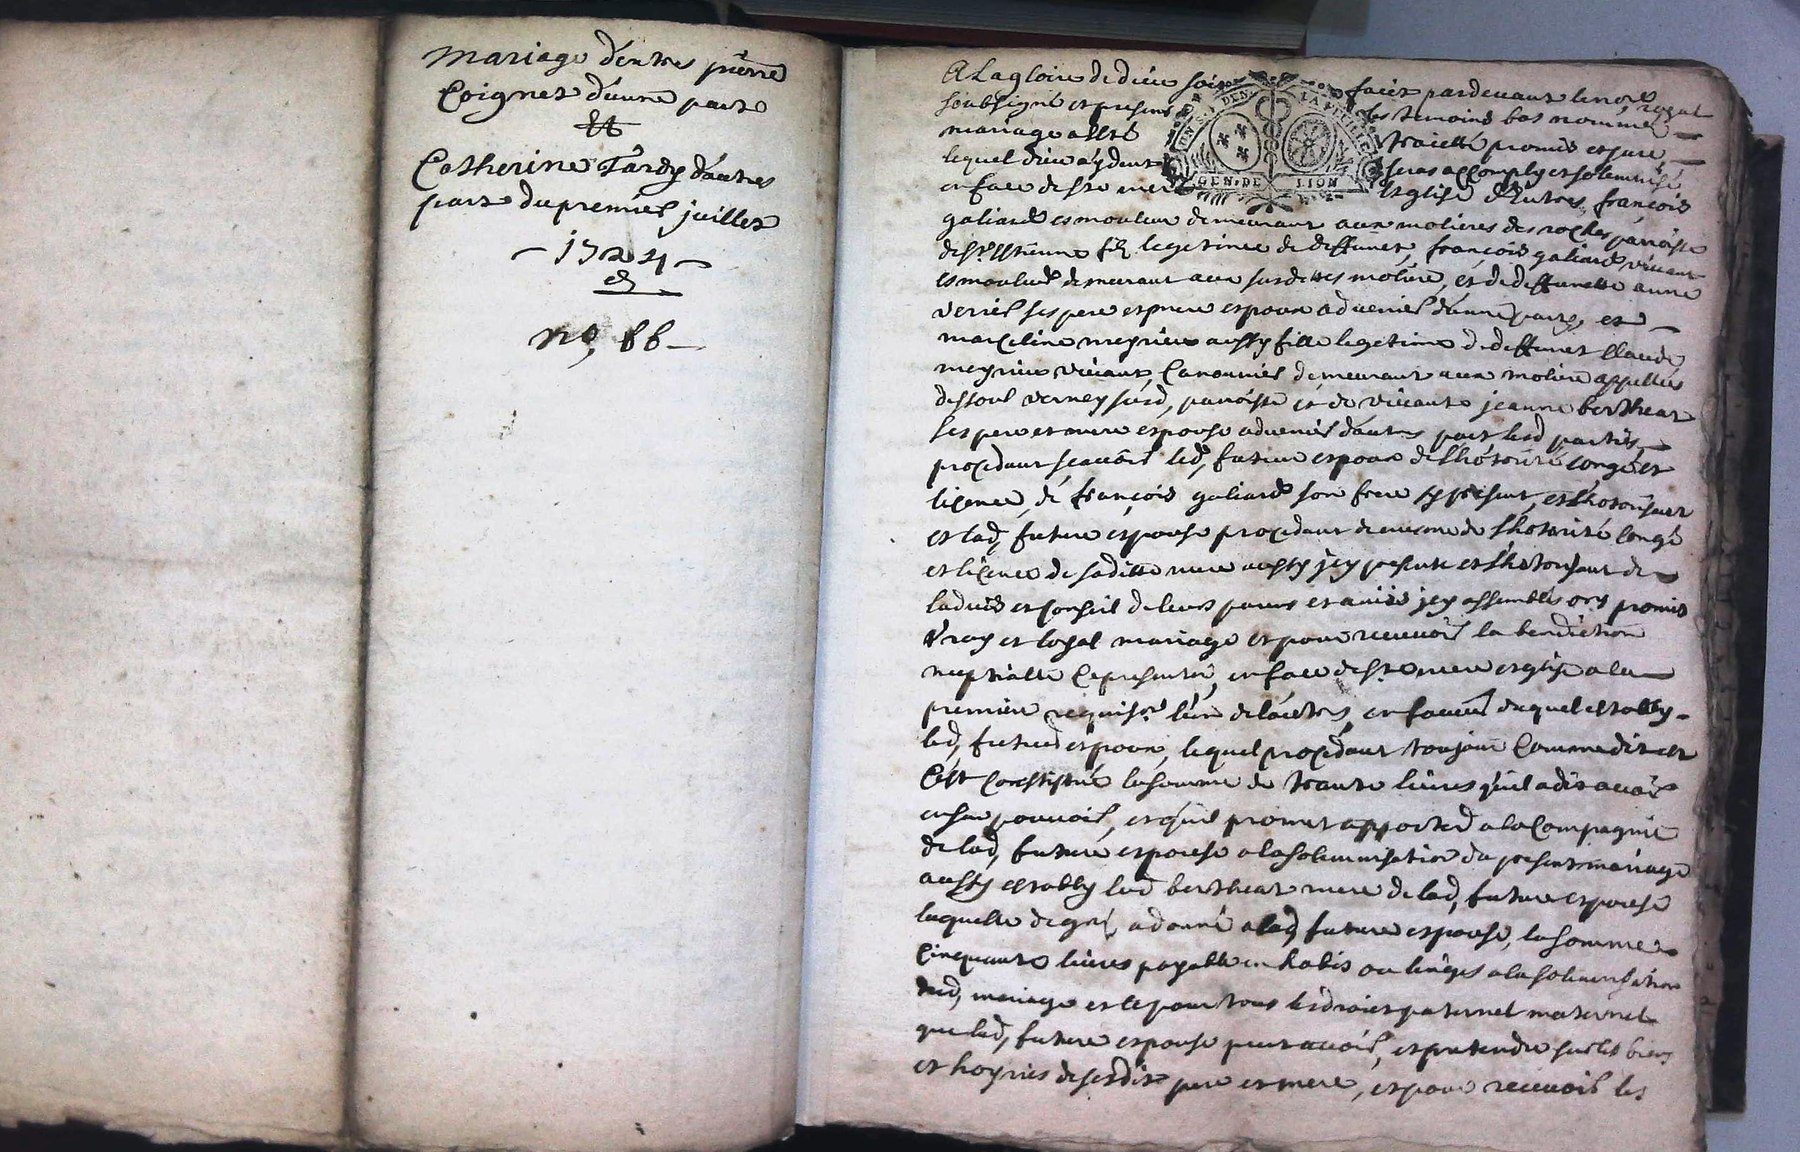 Mariage d'entres pierre
Coignet d'aune part
Et
Catherine Tardy d'autres
part du premier juillet
1724
no, 66
A La gloire de dieu soit faict pardevant le no.re royal
soubsigné et presens les temoins bas nommé
mariage a esté traicté promis et juré
lequel dieu aydant seras accomply et solemnisé
en face de ste mere Esglise d'Entres, françois
galiard esmouleur demeurant aux molieres des roches paroisse
de st Estienne fils legetime de deffunct, françois galiard vivant
esmouleur demeurant aux susdittes moliere, et de deffunctte anne
verrier ses pere et mere espoux advenir d'aune part, et
marceline meyrieu aussy fille legetime de deffunct Claude
meyrieu vivant, Canonnier demeurant aux moliere appellées
dessoul verney susd, paroisse et de vivante jeanne bertheat
ses pere et mere espouse advenir d'autres part lesd partyes
procedant sçavoir led, futeur espoux de l'hotorité congé et
licence, de françois galiard son frere jy present, et l'hotorisant
et lad, future espouse procedant de mesme de l'hotorité congé
et licence de saditte mere aussy jey presente et l'hotorisant de
ladvis et conseil de leurs parens et amis jey assemblés ons promis
vray et loyal mariage et pour recevoir la benediction
nuptialle Ce presenter, en face de ste mere esglise a la
premiere requis.on l'un de l'autres, en faveur duquel establyt
led, futeur espoux, lequel procedant toujour Comme dit est
C'est Constitué la somme de trante livres qu'il a dit avoir
en son pouvoir, et qu'il promet apporter a la Compagnie
de lad, future espouse a la solemnisation du present mariage
aussy establyt lad bertheat mere de lad, future espouse
laquelle de gré, a donné a lad, future espouse, la somme
Cinquante livres payable en habis ou linges a la solemnisation
dud, mariage et ce pour tous les droict paternel maternel
que lad, future espouse peut avoir, et pretendre sur les biens
et hoyries de sesdit pere et mere, et pour recevoir les
GEN. DE LION